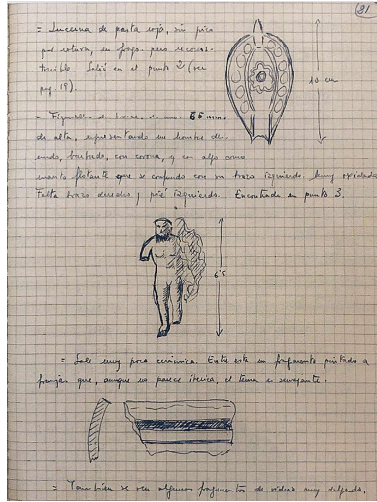 91
= Lucerna de pasta roja, sin pico
por rotura, en frags. pero recons-
truible. Salió en el punto 2 (ver
pag. 18).
10 cm
- Figurilla de bronce, de 65 mm
de alta, representando un hombre des-
nudo, barbado, con corona, y en algo como
manto flotante que se confunde con su brazo izquierdo. Muy oxidada
Falta brazo derecho y pié izquierdo. Encontrada en punto 3.
6'5
= Sale muy poca cerámica. Entre esta un fragmento pintado a
franjas que, aunque no parece ibérica, el tema es semejante.
= También se ven algunos fragmentos de vidrio muy delgado.